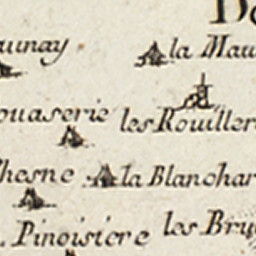 Do
aunay la Mau
ouaserie les Rouiller
hesne la Blanchar
Pinoisiere les Bru